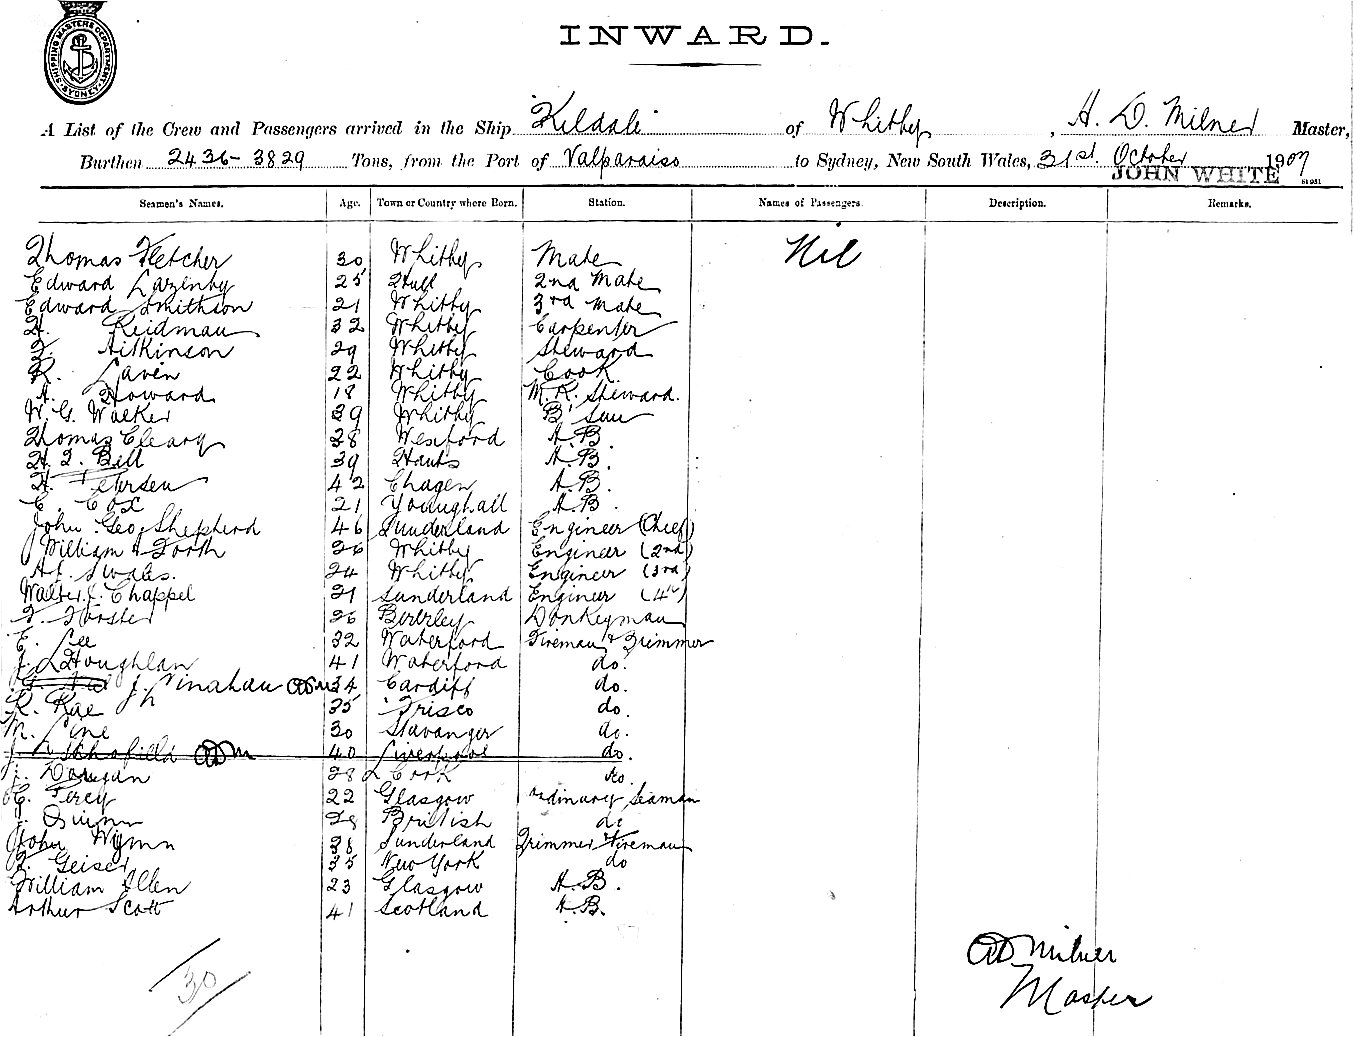 SHIPPING MASTERS DEPARTMENT
SYDNEY
INWARD.
A List of the Crew and Passengers arrived in the Ship Kildale of Whitby, A. D. Milner Master,
Burthen 2436-3829 Tons, from the Port of Valparaiso to Sydney, New South Wales, 31st October 1907
JOHN WHITE
Seamen's Names. Age. Town or Country where Born. Station. Names of Passengers. Description. Remarks.
Thomas Fletcher 30 Whitby Mate Nil
Edward Lazenby 25 Hull 2nd Mate
Edward Smithson 21 Whitby 3rd Mate
H. Reidman 32 Whitby Carpenter
T. Aitkinson 29 Whitby Steward
R. Laven 22 Whitby Cook
A. Howard 18 Whitby M. R. Steward.
W. G. Walker 39 Whitby B' Sun
Thomas Cleary 28 Wexford A.B.
H. T. Bill 39 Hants A.B.
H. Petersen 42 A.B.
C. Cox 21 Youghall A.B.
John Geo. Shepherd 46 Sunderland Engineer (Chief)
William Forth 26 Whitby Engineer (2nd)
A. Swales. 24 Whitby Engineer (3rd)
Walter J. Chappel 21 Sunderland Engineer (4th)
F. Forster 26 Beverley Donkeyman
E. Lee 32 Waterford Fireman & Trimmer
J. Houghlan 41 Waterford do.
J. Vinahan ADM 34 Cardiff do.
R. Rae 35 Frisco do.
M. Line 30 Stavanger do.
J. Schofield ADM 40 Liverpool do.
J. Dorgan 28 Cork do.
C. Percy 22 Glasgow ordinary Seaman
J. Quinn 28 British do
John Wynn 38 Sunderland Trimmer & Fireman
F. Geiser 35 New York do
William Allen 23 Glasgow A.B.
Arthur Scott 41 Scotland A.B.
30
AD Milner
Master